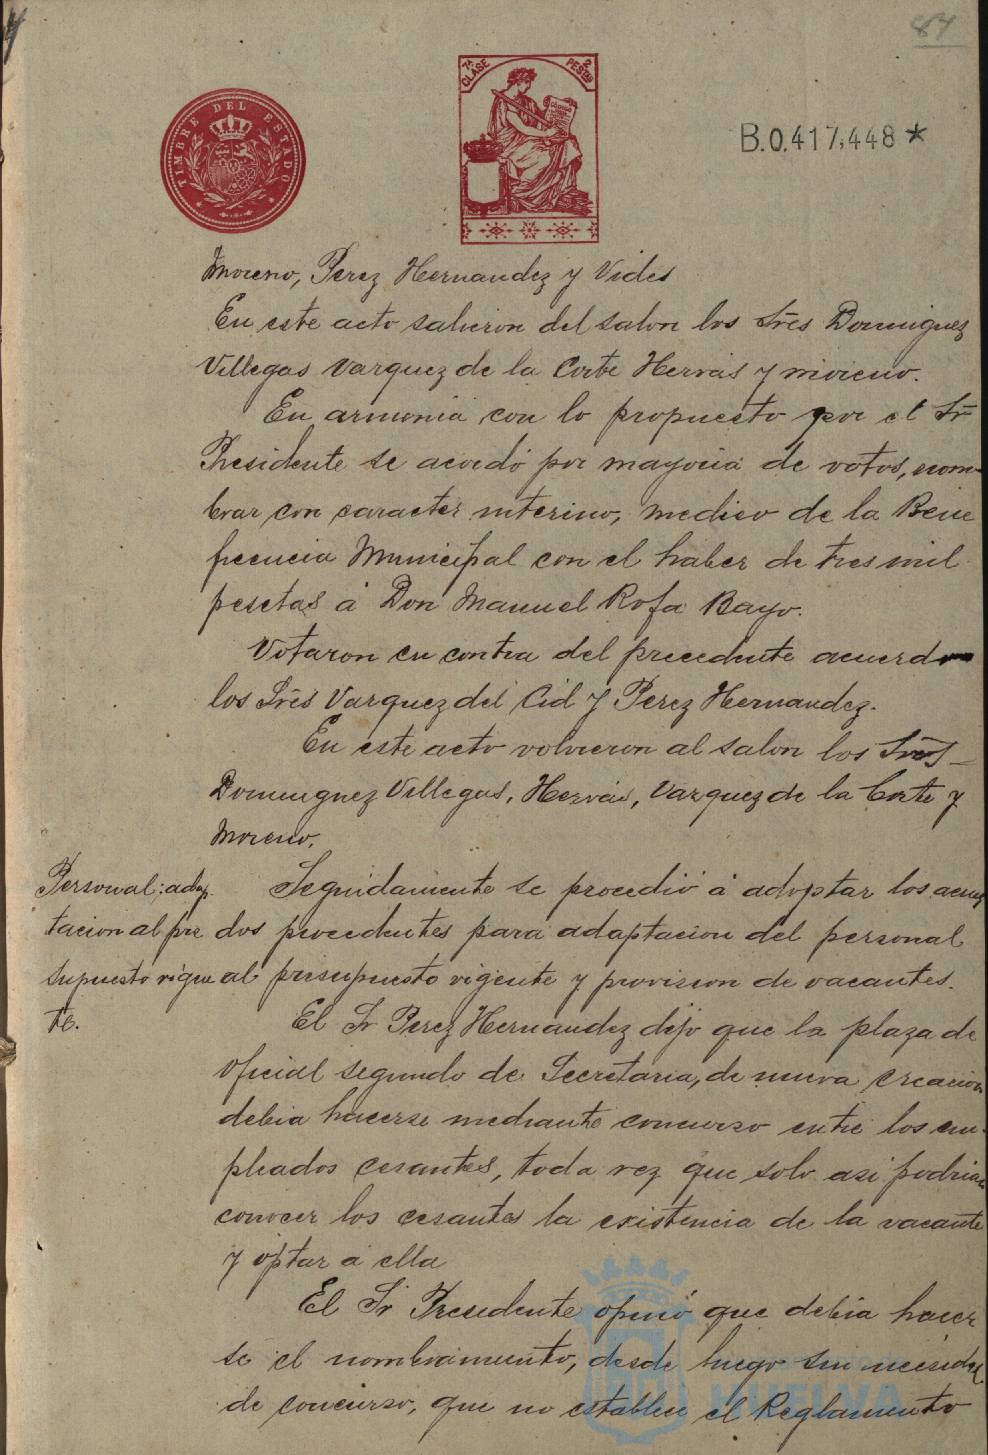 84
TIMBRE DEL ESTADO
7ª CLASE
2 PESETAS
B.0.417,448*
Moreno, Perez Hernandez y Vides
En este acto salieron del salon los Srēs Dominguez
Villegas Vazquez de la Corte Hervás y moreno.
En armonia con lo propuesto por el Sr
Presidente se acordó por mayoria de votos, nom-
brar con caracter interino, medico de la Bene
ficencia Municipal con el haber de tres mil
pesetas á Don Manuel Rofa Bayo.
Votaron en contra del precedente acuerdo
los Srēs Vazquez del Cid y Perez Hernandez.
En este acto volvieron al salon los Srēs
Dominguez Villegas, Hervás, Vazquez de la Corte y
Moreno.
Personal; adap-
tacion al pre
supuesto vigen
te.
Seguidamente se procedió á adoptar los acuer
dos procedentes para adaptacion del personal
al presupuesto vigente y provision de vacantes.
El Sr Perez Hernandez dijo que la plaza de
oficial segundo de Secretaria, de nueva creacion
debia hacerse mediante concurso entre los em-
pleados cesantes, toda vez que solo asi podrian
conocer los cesantes la existencia de la vacante
y optar á ella
El Sr Presidente opinó que debia hacer
se el nombramiento, desde luego sin necesidad
de concurso, que no establece el Reglamento
HUELVA